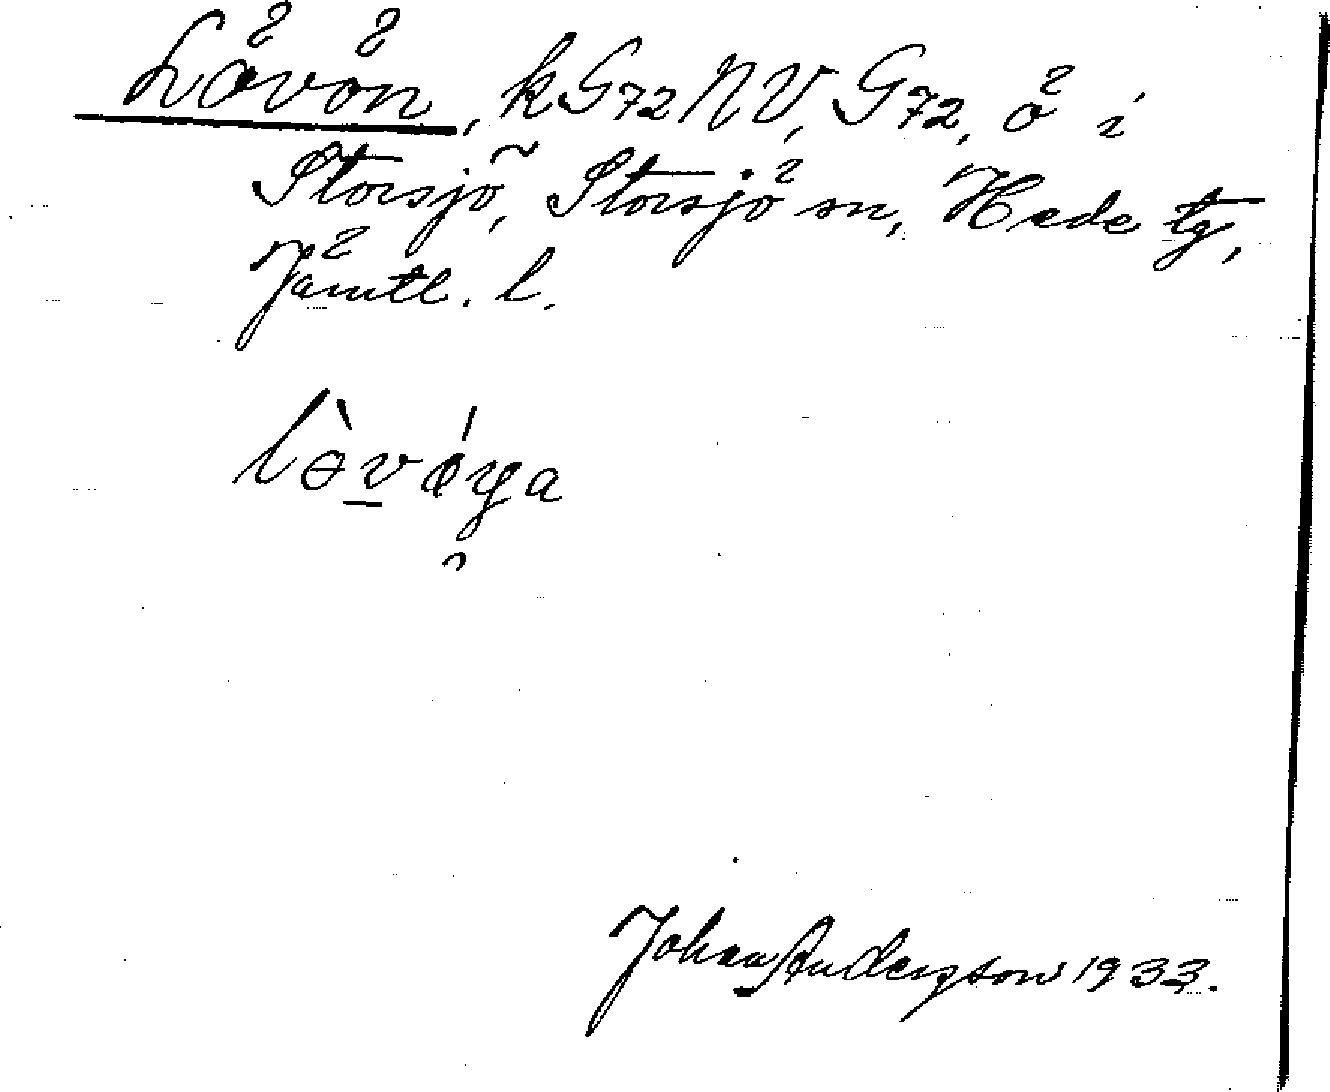 Lövön, k G72NV, G72, ö i
Storsjö, Storsjö sn, Hede tg,
Jämtl. l.
Johan Andersson 1933.